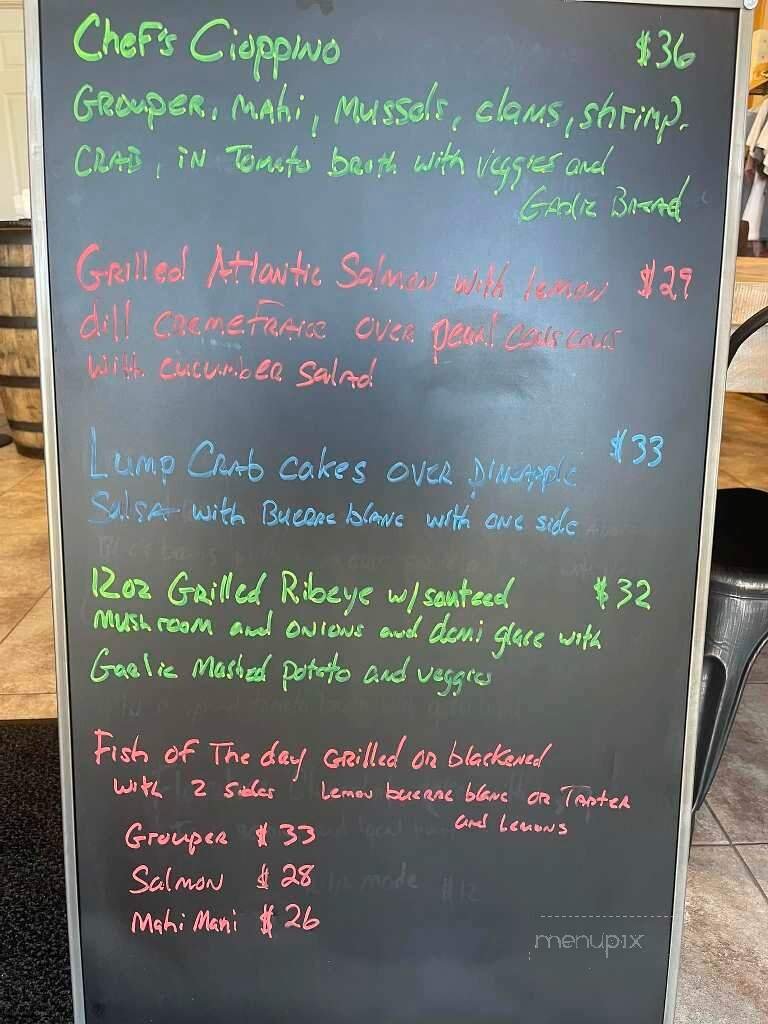 Chef's Cioppino $36
Grouper, Mahi, Mussels, clams, shrimp.
CRAB, in Tomato broth with veggies and
Garlic Bread
Grilled Atlantic Salmon with lemon $29
dill cremefraice over pearl couscous
with cucumber salad
Lump Crab cakes over pineapple $33
Salsa with Buerre blanc with one side
12oz Grilled Ribeye w/ sauteed $32
Mushroom and onions and demi glace with
Garlic Mashed potato and veggies
Fish of The day Grilled or blackened
with 2 sides Lemon buerre blanc or Tarter
and Lemons
Grouper $33
Salmon $28
Mahi Mahi $26
menupix